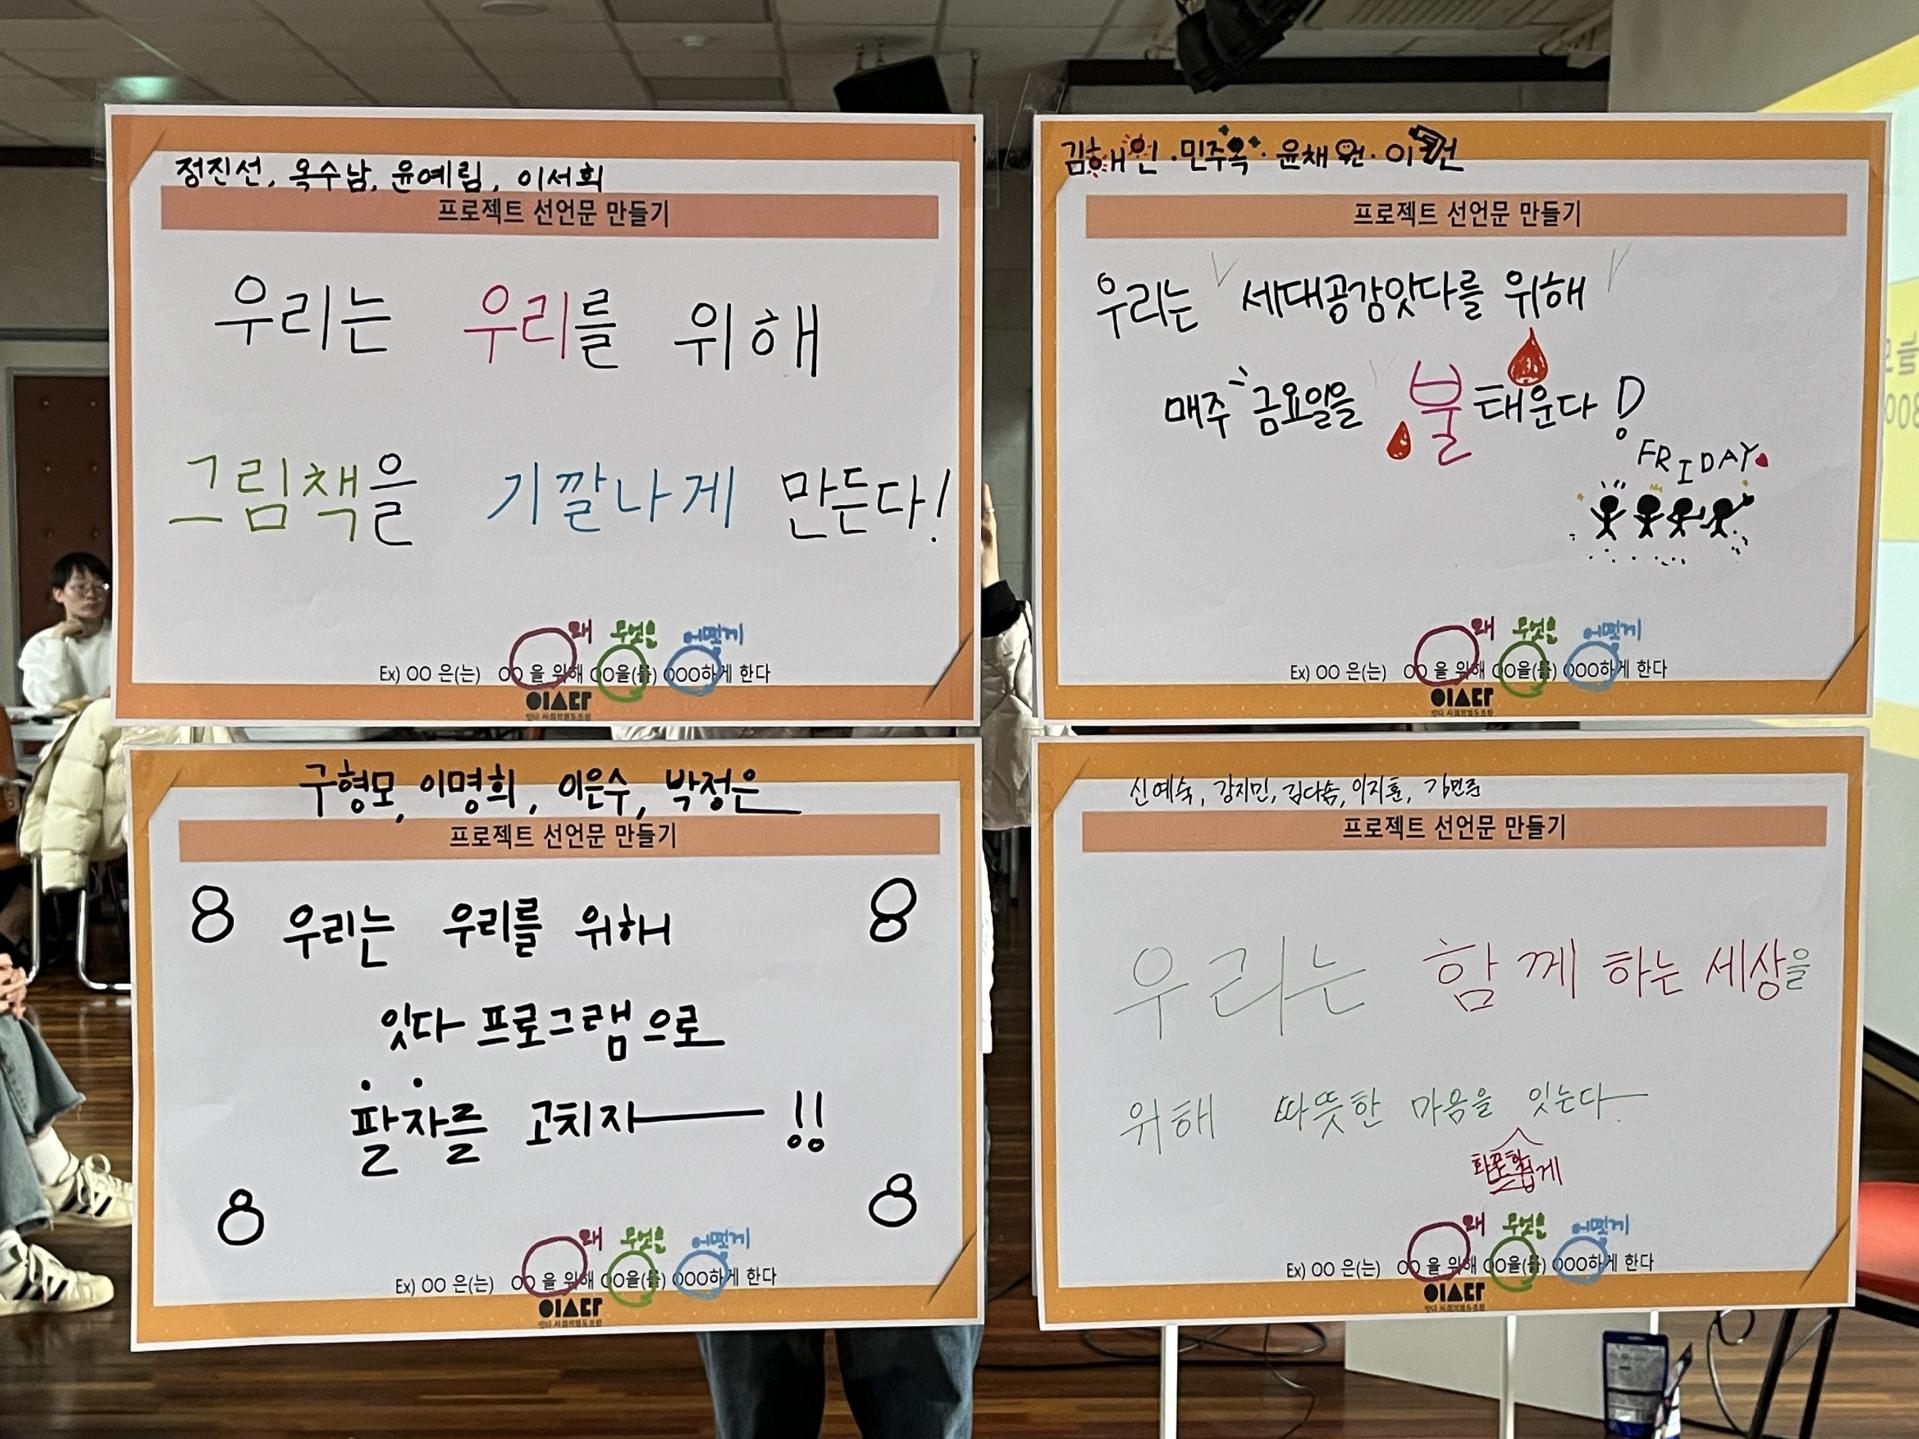 정진선, 옥수남, 윤예림, 이서희
프로젝트 선언문 만들기
우리는 우리를 위해
그림책을 기깔나게 만든다!
왜 무엇을 어떻게
Ex) OO 은(는) OO 을 위해 OO을(를) OOO하게 한다
잇다
잇다 사회적협동조합
김해인·민주옥·윤채원·이
프로젝트 선언문 만들기
우리는 세대공감잇다를 위해
매주 금요일을 불태운다!
FRIDAY
왜 무엇을 어떻게
Ex) OO 은(는) OO 을 위해 OO을(를) OOO하게 한다
잇다
잇다 사회적협동조합
구형모, 이명희, 이은수, 박정은
프로젝트 선언문 만들기
8 8
우리는 우리를 위해
잇다 프로그램으로
팔자를 고치자 !!
8 8
왜 무엇을 어떻게
Ex) OO 은(는) OO 을 위해 OO을(를) OOO하게 한다
잇다
잇다 사회적협동조합
신예숙, 강지민, 김다솜, 이지훈, 김민준
프로젝트 선언문 만들기
우리는 함께 하는 세상을
위해 따뜻한 마음을 잇는다
왜 무엇을 어떻게
Ex) OO 은(는) OO 을 위해 OO을(를) OOO하게 한다
잇다
잇다 사회적협동조합